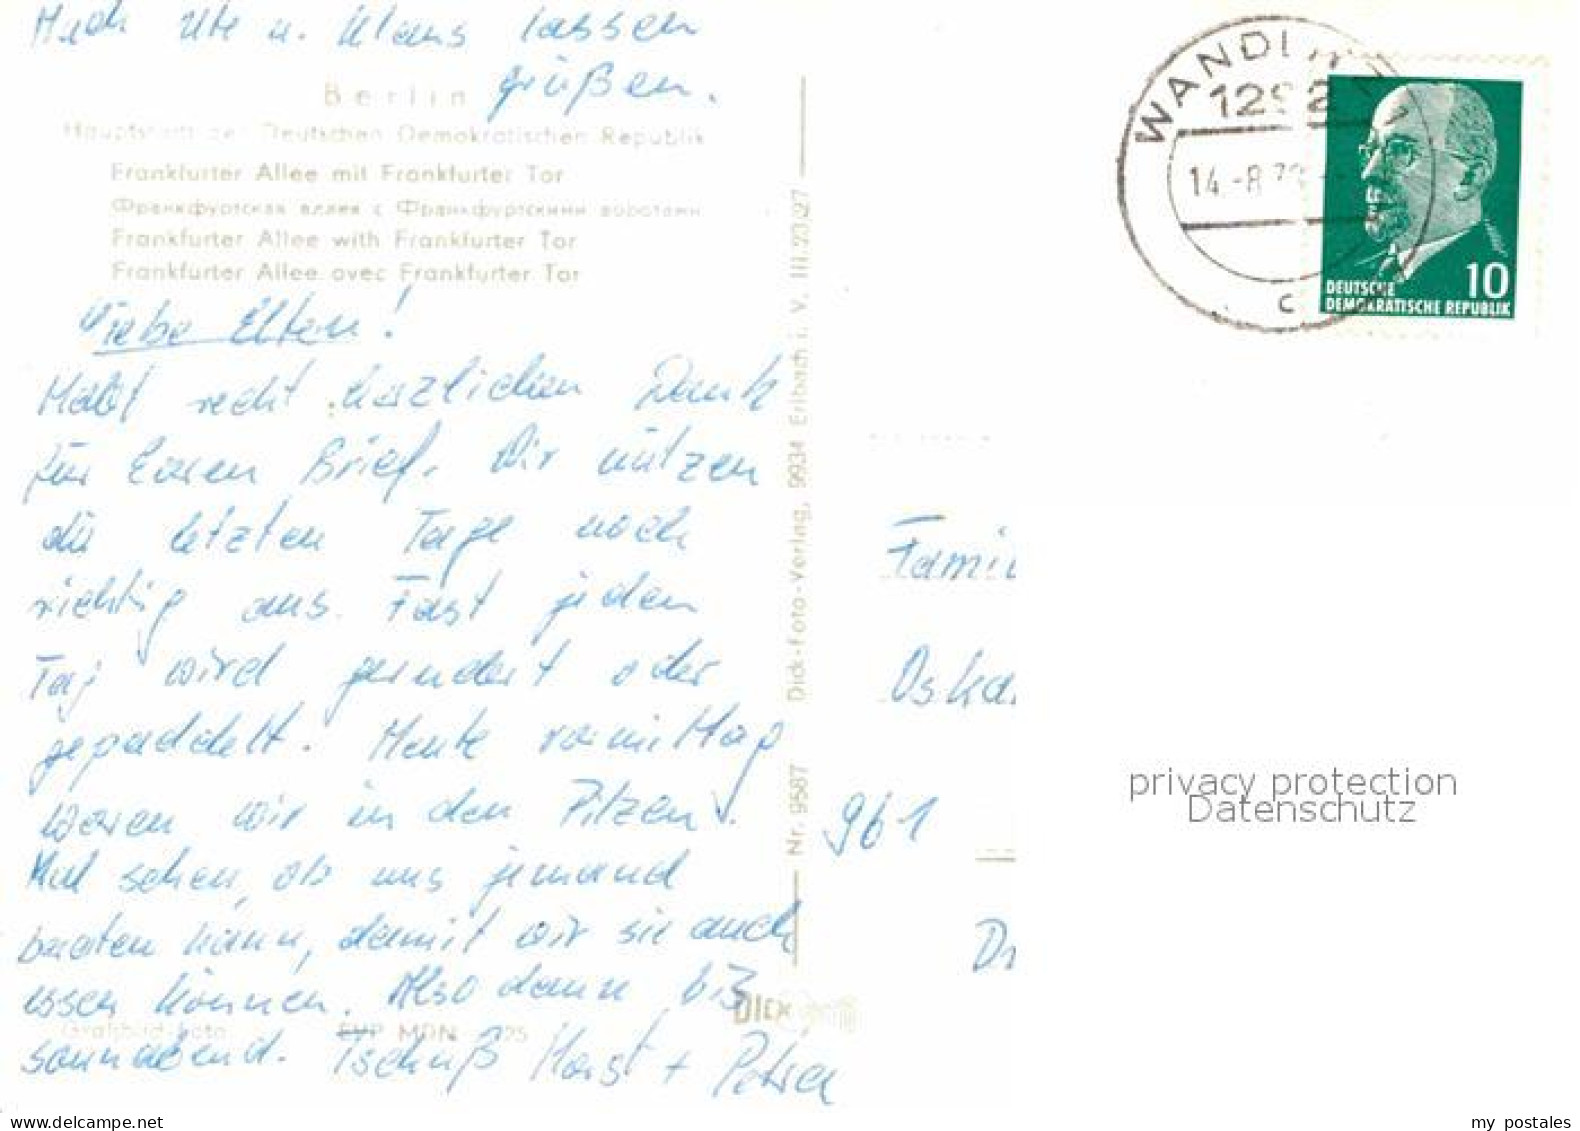 Auch Ute u. Klaus lassen
grüßen.
Berlin
Hauptstadt der Deutschen Demokratischen Republik
Frankfurter Allee mit Frankfurter Tor
Франкфуртская аллея с Франкфуртскими воротами
Frankfurter Allee with Frankfurter Tor
Frankfurter Allee avec Frankfurter Tor
Liebe Eltern!
Habt recht herzlichen Dank
für Euren Brief. Wir nützen
die letzten Tage noch
richtig aus. Fast jeden
Tag wird gerudert oder
gepaddelt. Heute vormittag
waren wir in den Pilzen.
Mal sehen, ob uns jemand
braten kann, damit wir sie auch
essen können. Also dann bis
sonnabend. Tschüß Horst + Petra
Großbild-Foto EVP MDN 25
DICK
Nr. 9587 Dick-Foto-Verlag, 9934 Erlbach i. V. III/23/27
WANDL
1292
14.-8.70
c
10
DEUTSCHE
DEMOKRATISCHE REPUBLIK
Famil
Oskar
961
Dr
privacy protection
Datenschutz
my postales
www.delcampe.net